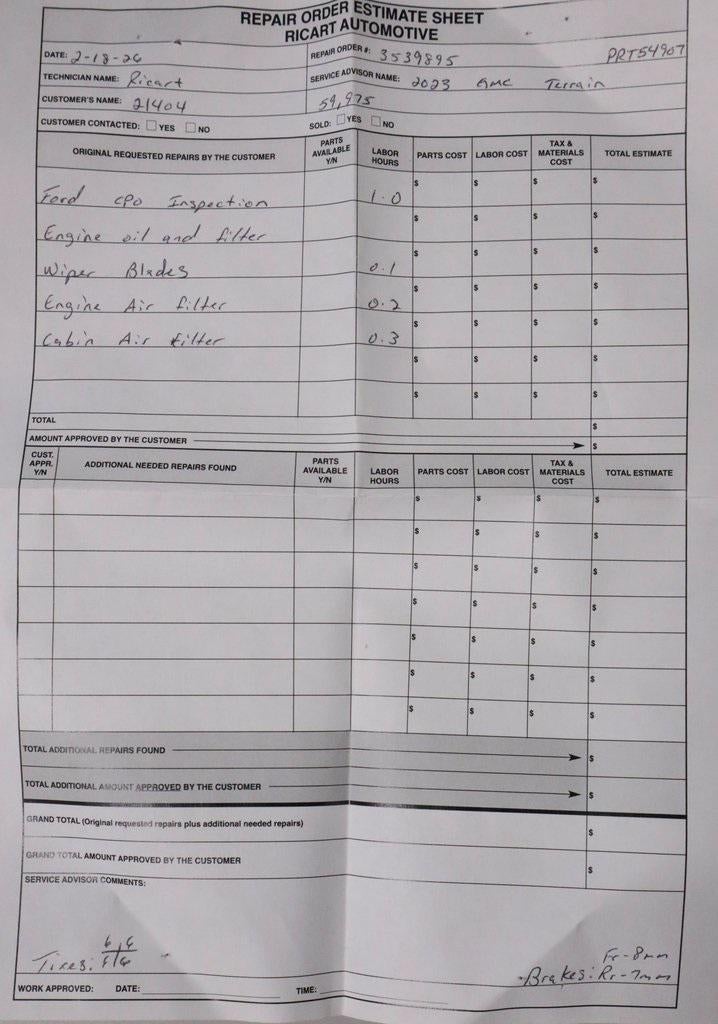 REPAIR ORDER ESTIMATE SHEET
RICART AUTOMOTIVE
DATE: 2-18-26 REPAIR ORDER #: 3539895 PRT54907
TECHNICIAN NAME: Ricart SERVICE ADVISOR NAME: 2023 GMC Terrain
CUSTOMER'S NAME: 21404 59,975
CUSTOMER CONTACTED: YES NO SOLD: YES NO
ORIGINAL REQUESTED REPAIRS BY THE CUSTOMER PARTS AVAILABLE Y/N LABOR HOURS PARTS COST LABOR COST TAX & MATERIALS COST TOTAL ESTIMATE
Ford CPO Inspection 1.0 $ $ $ $
Engine oil and filter $ $ $ $
Wiper Blades 0.1 $ $ $ $
Engine Air filter 0.2 $ $ $ $
Cabin Air Filter 0.3 $ $ $ $
$ $ $ $
$ $ $ $
TOTAL $
AMOUNT APPROVED BY THE CUSTOMER $
CUST. APPR. Y/N ADDITIONAL NEEDED REPAIRS FOUND PARTS AVAILABLE Y/N LABOR HOURS PARTS COST LABOR COST TAX & MATERIALS COST TOTAL ESTIMATE
$ $ $ $
$ $ $ $
$ $ $ $
$ $ $ $
$ $ $ $
$ $ $ $
$ $ $ $
TOTAL ADDITIONAL REPAIRS FOUND $
TOTAL ADDITIONAL AMOUNT APPROVED BY THE CUSTOMER $
GRAND TOTAL (Original requested repairs plus additional needed repairs) $
GRAND TOTAL AMOUNT APPROVED BY THE CUSTOMER $
SERVICE ADVISOR COMMENTS:
6 6
Tires: 6 Fr-8mm
Brakes: Rr-7mm
WORK APPROVED: DATE: TIME: